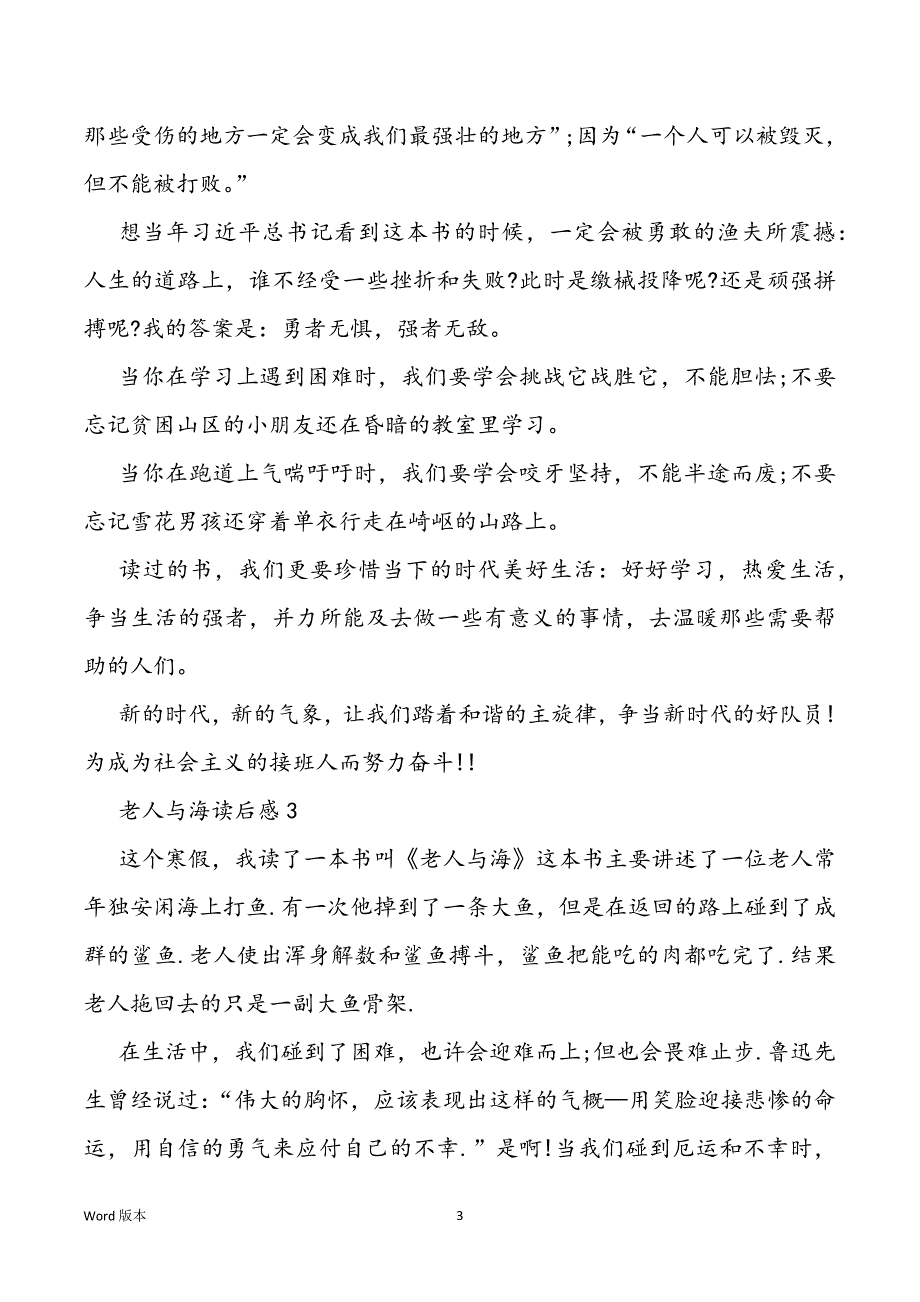 那些受伤的地方一定会变成我们最强壮的地方”;因为“一个人可以被毁灭，
但不能被打败。”
想当年习近平总书记看到这本书的时候，一定会被勇敢的渔夫所震撼：
人生的道路上，谁不经受一些挫折和失败?此时是缴械投降呢?还是顽强拼
搏呢?我的答案是：勇者无惧，强者无敌。
当你在学习上遇到困难时，我们要学会挑战它战胜它，不能胆怯;不要
忘记贫困山区的小朋友还在昏暗的教室里学习。
当你在跑道上气喘吁吁时，我们要学会咬牙坚持，不能半途而废;不要
忘记雪花男孩还穿着单衣行走在崎岖的山路上。
读过的书，我们更要珍惜当下的时代美好生活：好好学习，热爱生活，
争当生活的强者，并力所能及去做一些有意义的事情，去温暖那些需要帮
助的人们。
新的时代，新的气象，让我们踏着和谐的主旋律，争当新时代的好队员!
为成为社会主义的接班人而努力奋斗!!
老人与海读后感3
这个寒假，我读了一本书叫《老人与海》这本书主要讲述了一位老人常
年独安闲海上打鱼.有一次他掉到了一条大鱼，但是在返回的路上碰到了成
群的鲨鱼.老人使出浑身解数和鲨鱼搏斗，鲨鱼把能吃的肉都吃完了.结果
老人拖回去的只是一副大鱼骨架.
在生活中，我们碰到了困难，也许会迎难而上;但也会畏难止步.鲁迅先
生曾经说过：“伟大的胸怀，应该表现出这样的气概—用笑脸迎接悲惨的命
运，用自信的勇气来应付自己的不幸.”是啊!当我们碰到厄运和不幸时，
Word版本 3